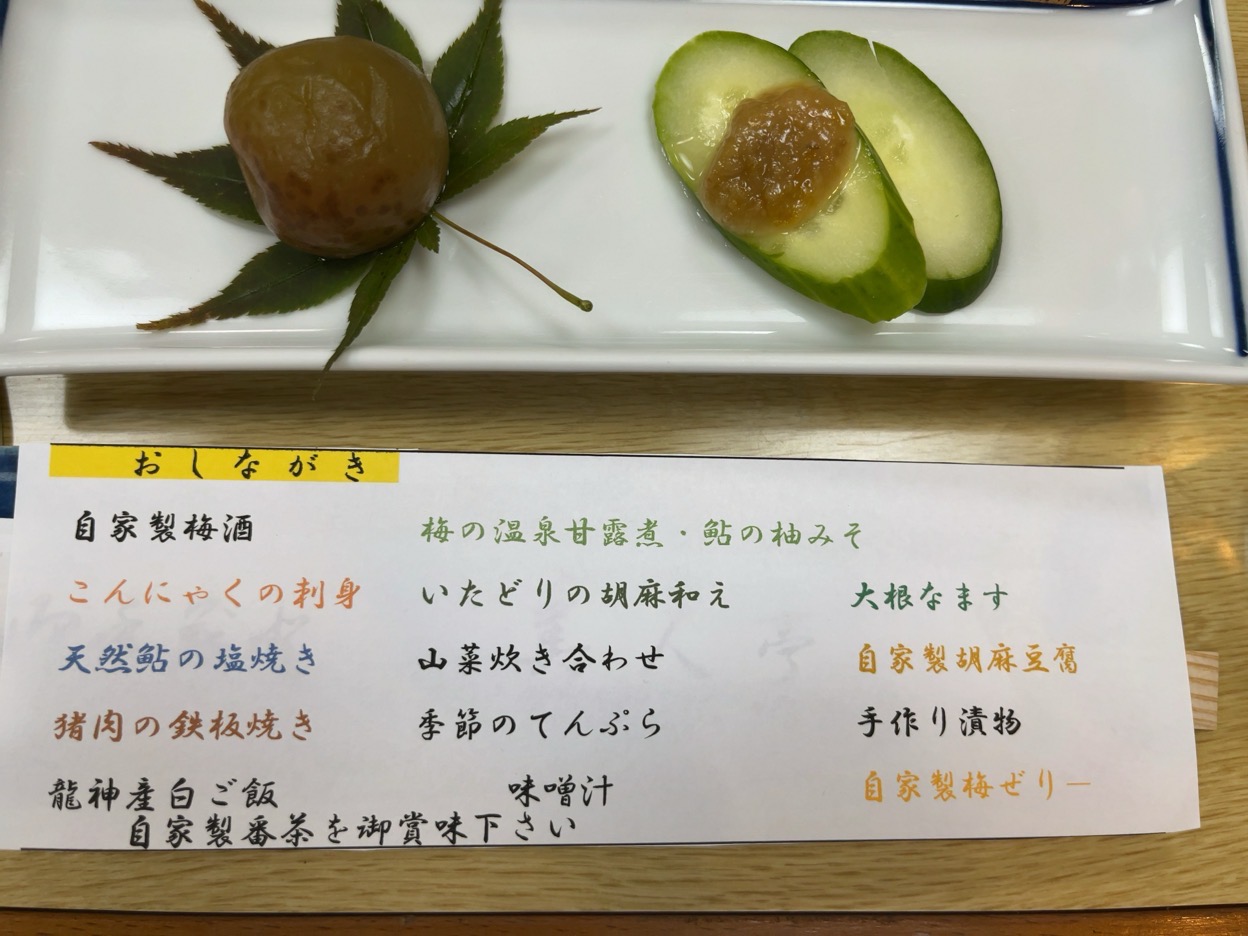 おしながき
自家製梅酒 梅の温泉甘露煮・鮎の柚みそ
こんにゃくの刺身 いたどりの胡麻和え 大根なます
天然鮎の塩焼き 山菜炊き合わせ 自家製胡麻豆腐
猪肉の鉄板焼き 季節のてんぷら 手作り漬物
龍神産白ご飯 味噌汁 自家製梅ぜりー
自家製番茶を御賞味下さい